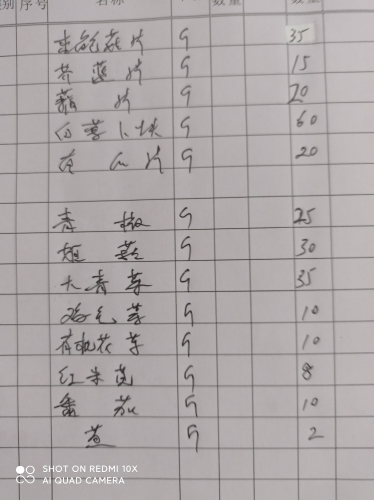 别 序号 名称 数量 数量
杏鲍菇片 G 35
芥蓝片 G 15
藕片 G 20
白萝卜块 G 60
G 20
青椒 G 25
G 30
大青菜 G 35
鸡毛菜 G 10
有机花菜 G 10
红米苋 G 8
番茄 G 10
G 2
SHOT ON REDMI 10X
AI QUAD CAMERA